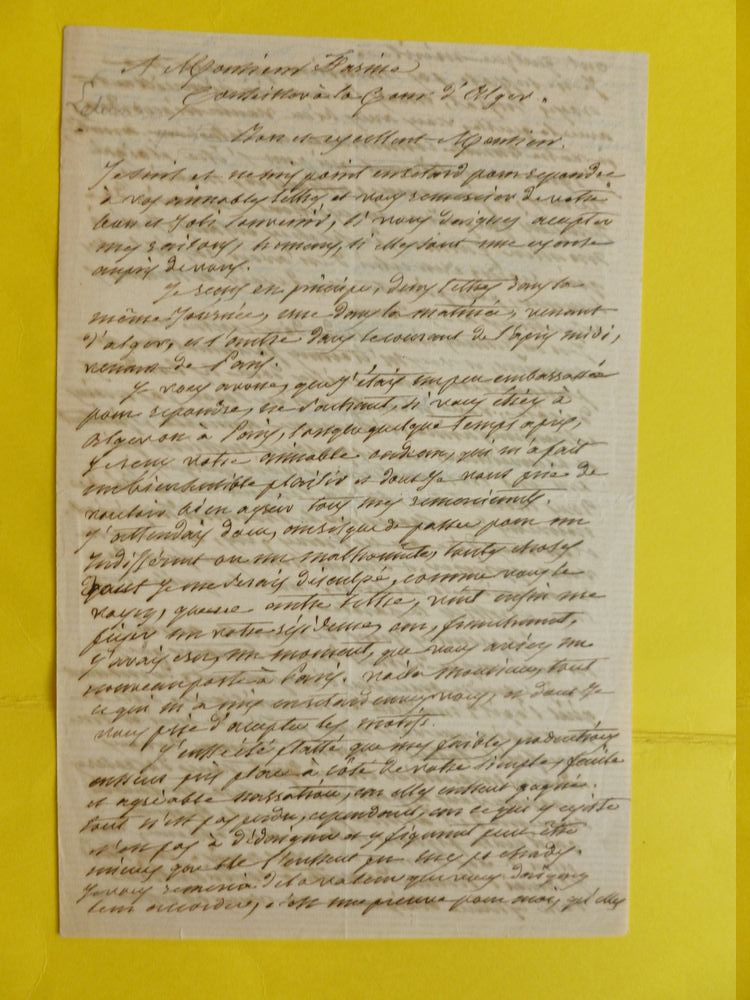 A Monsieur Farine
Conseiller à la Cour d'Alger.
Bon et excellent Monsieur.
Je suis et ne suis point en retard pour repondre
à vos aimables lettres et vous remercier de votre
bon et joli souvenir, si vous daignez accepter
mes raisons, si elles sont une excuse
auprès de vous.
Je reçus en principe, deux lettres dans la
même journée, une dans la matinée, venant
d'alger, et l'autre dans le courant de l'après midi,
venant de Paris.
Je vous avoue, que j'étais un peu embarrassé
pour repondre, ne sachant, si vous étiez à
Alger ou à Paris, lorsque quelque temps après,
je reçus votre aimable, qui m'a fait
un bien sensible plaisir et dont je vous prie de
vouloir bien agréer tous mes remerciements.
J'attendais donc, au risque de passer pour un
indifférent ou un malhonnête, toutes choses
dont je me serais disculpé, comme vous le
voyez, qu'une autre lettre, vint enfin me
fixer sur votre résidence, car, franchement,
j'avais cru, un moment, que vous aviez un
nouveau poste à Paris. Voilà monsieur, tout
ce qui m'a mis en retard envers vous, et dont je
vous prie d'accepter les motifs.
J'eusse été flatté que mes faibles productions
eussent pris place à côté de votre simple, facile
et agréable narration, car elles eussent gagné.
tout n'est pas perdu, cependant, car ce qui y existe
n'est pas à dédaigner et y figurent peut être
mieux que ne l'eussent fait mes pochades.
Je vous remercie de la valeur que vous daignez
leur accorder, c'est une preuve pour moi, qu'elles